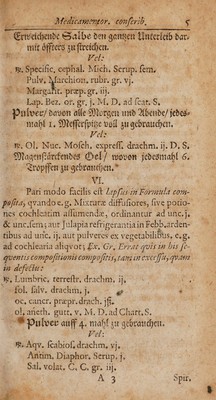 Medicamentor. conscrib. 5
Erweichende Salbe den gantzen Unterleib dar-
mit öffters zu streichen.
Vel:
℞. Specific. cephal. Mich. Scrup. sem.
Pulv. Marchion. rubr. gr. vj.
Margarit. præp. gr. iij.
Lap. Bez. or. gr. j. M. D. ad scat. S.
Pulver/ davon alle Morgen und Abende/ jedes-
mahl 1. Messerspitze voll zu gebrauchen.
Vel:
℞. Ol. Nuc. Mosch. express. drachm. ij. D. S.
Magenstärckendes Oel/ wovon jedesmahl 6.
Tropffen zu gebrauchen.
VI.
Pari modo facilis est lapsus in Formula com-
posita, qvando e. g. Mixturæ diffusiores, sive potio-
nes cochleatim assumendæ, ordinantur ad unc. j.
& unc. sem; aut Julapia refrigerantia in Febb. arden-
tibus ad unc. ij. aut pulveres ex vegetabilibus, e. g.
ad cochlearia aliqvot; Ex. Gr. Errat qvis in his se-
qventis compositionis compositis, tam in excessu, qvam
in defectu:
℞. Lumbric. terrestr. drachm. ij.
fol. salv. drachm. j.
oc. cancr. præp. drach. jß.
ol. aneth. gutt. v. M. D. ad Chart. S.
Pulver auff 4. mahl zu gebrauchen.
Vel:
℞. Aqv. scabios. drachm. vj.
Antim. Diaphor. Scrup. j.
Sal. volat. C. C. gr. iij.
A 3 Spir.